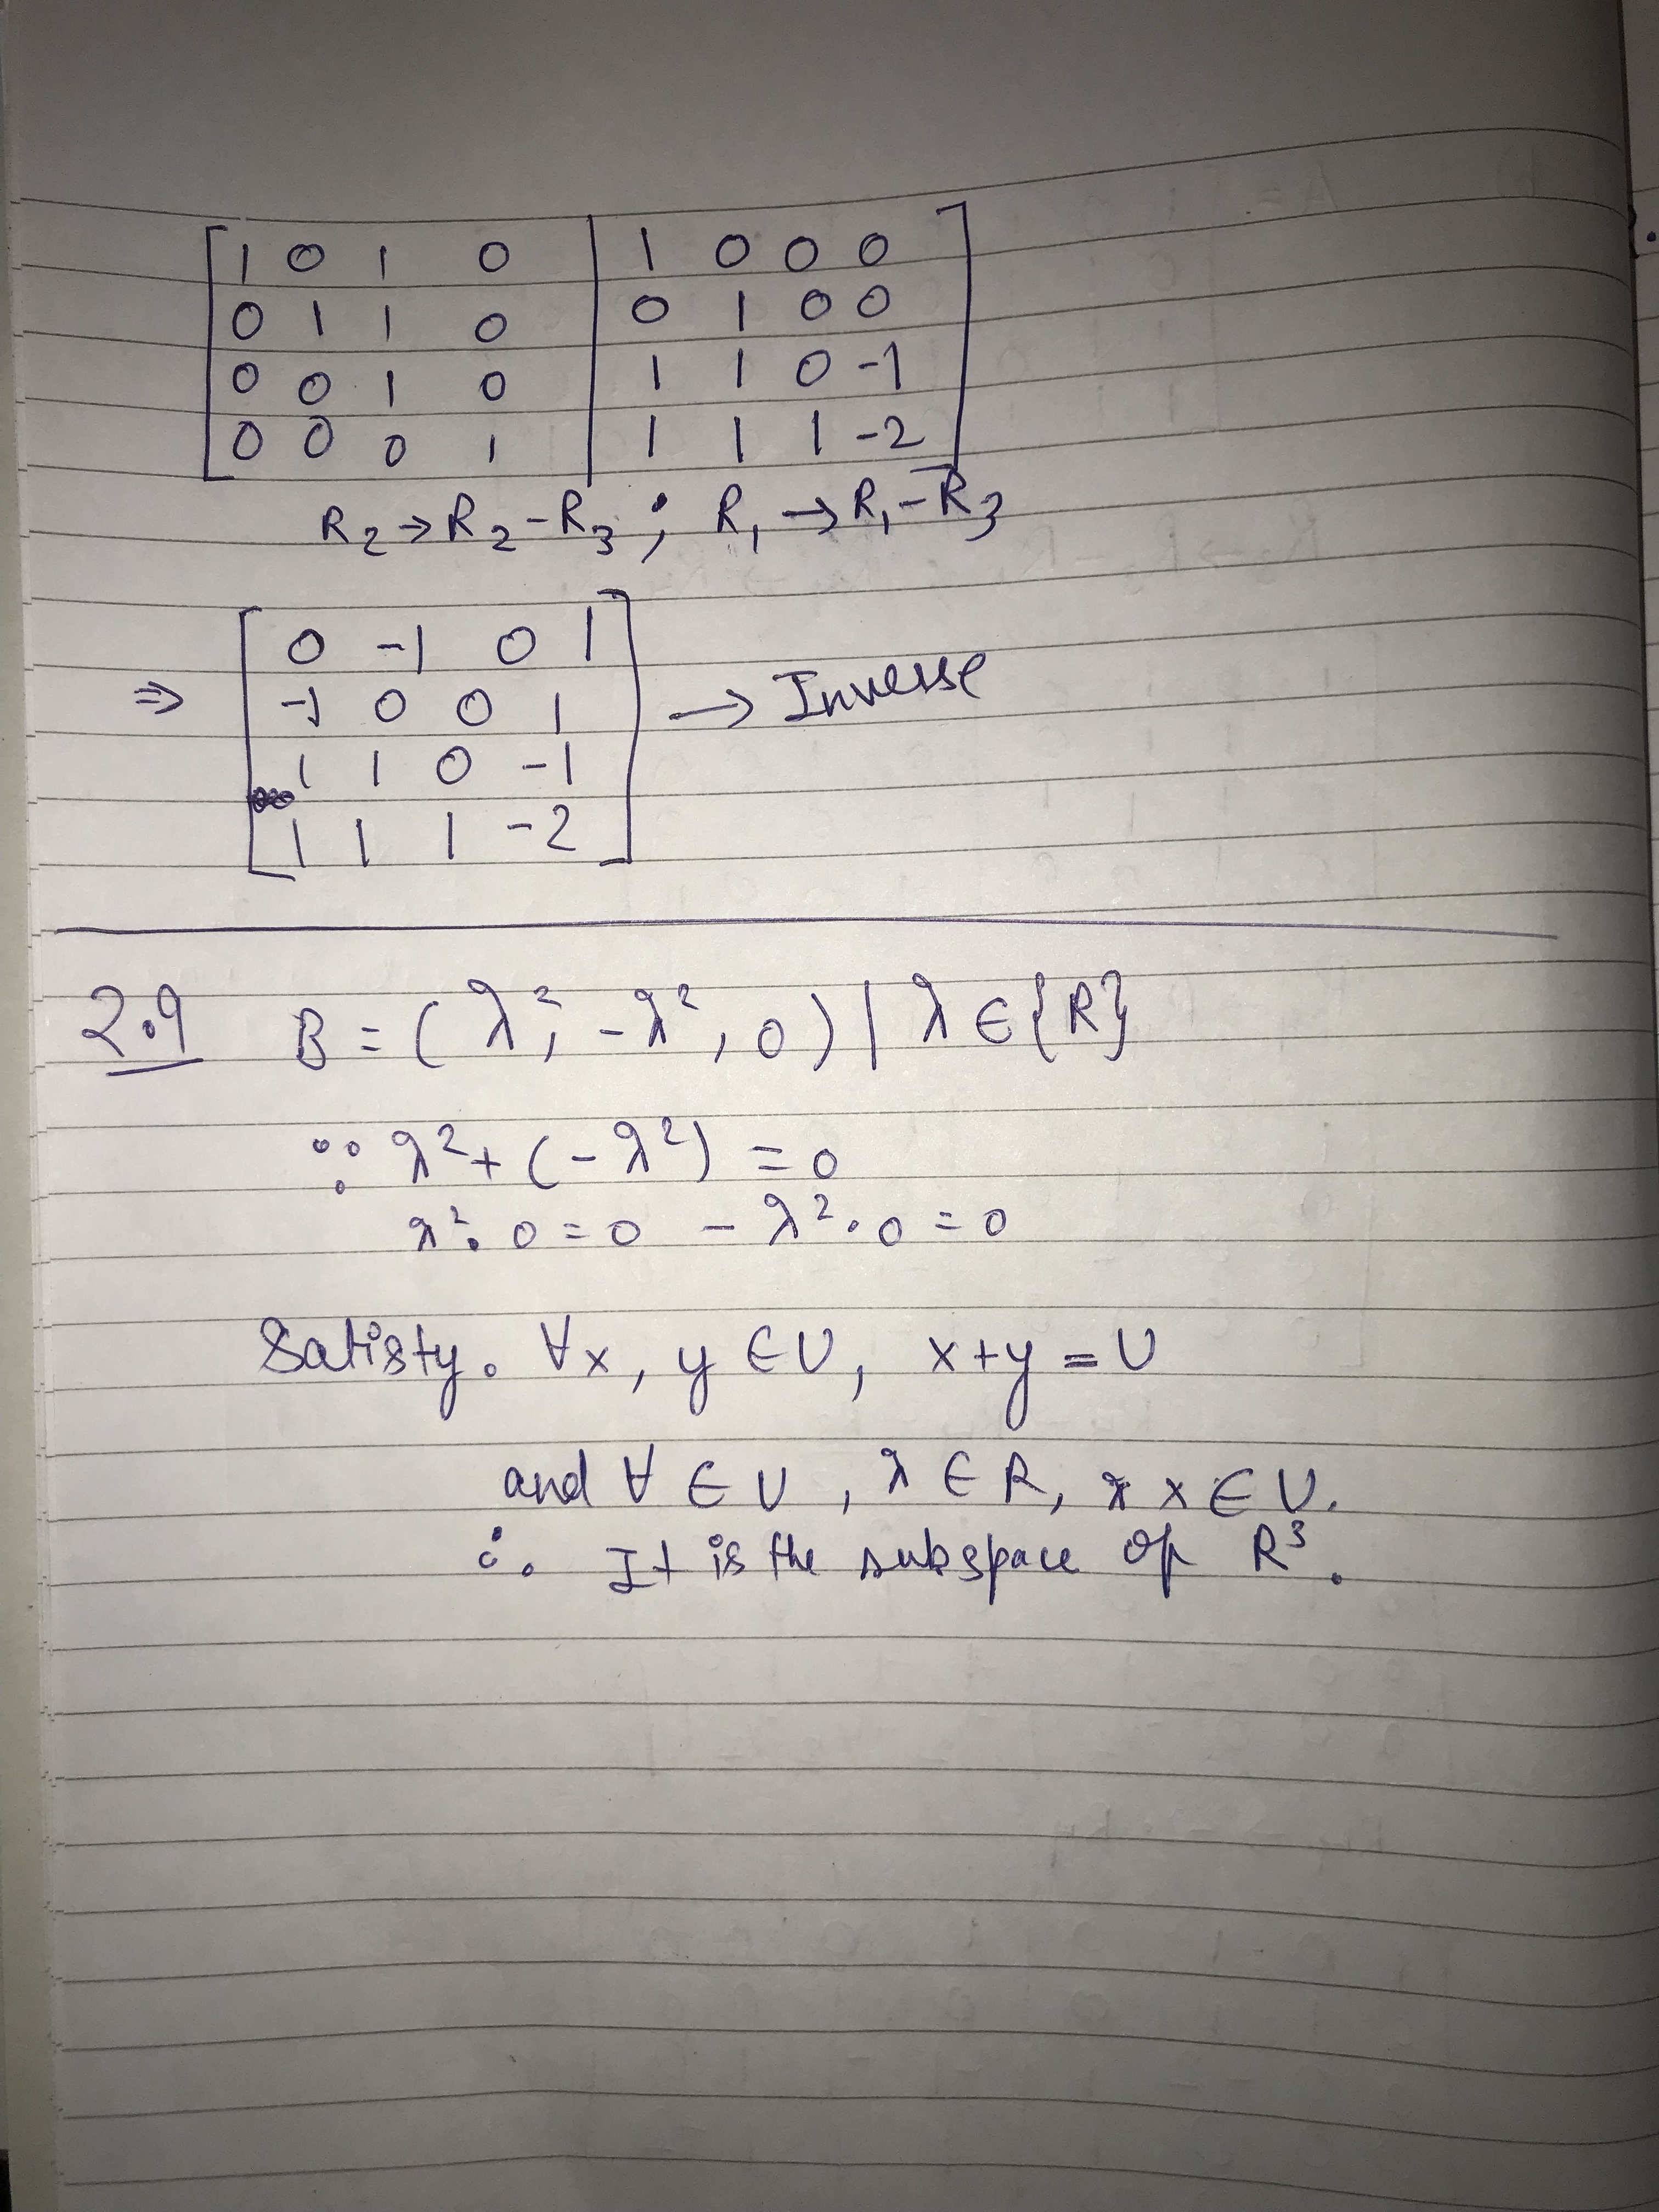 1 0 1 0 | 1 0 0 0
0 1 1 0 | 0 1 0 0
0 0 1 0 | 1 1 0 -1
0 0 0 1 | 1 1 1 -2
R₂→R₂-R₃ ; R₁→R₁-R₃
0 -1 0 1
⇒ -1 0 0 1 → Inverse
1 1 0 -1
1 1 1 -2
2.9 B = (λ², -λ², 0) | λ ∈ {R}
∵ λ² + (-λ²) = 0
λ². 0 = 0 - λ². 0 = 0
Satisty. ∀x, y ∈ U, x+y = U
and ∀ ∈ U, λ ∈ R, x ∈ U.
∴ It is the subspace of R³.